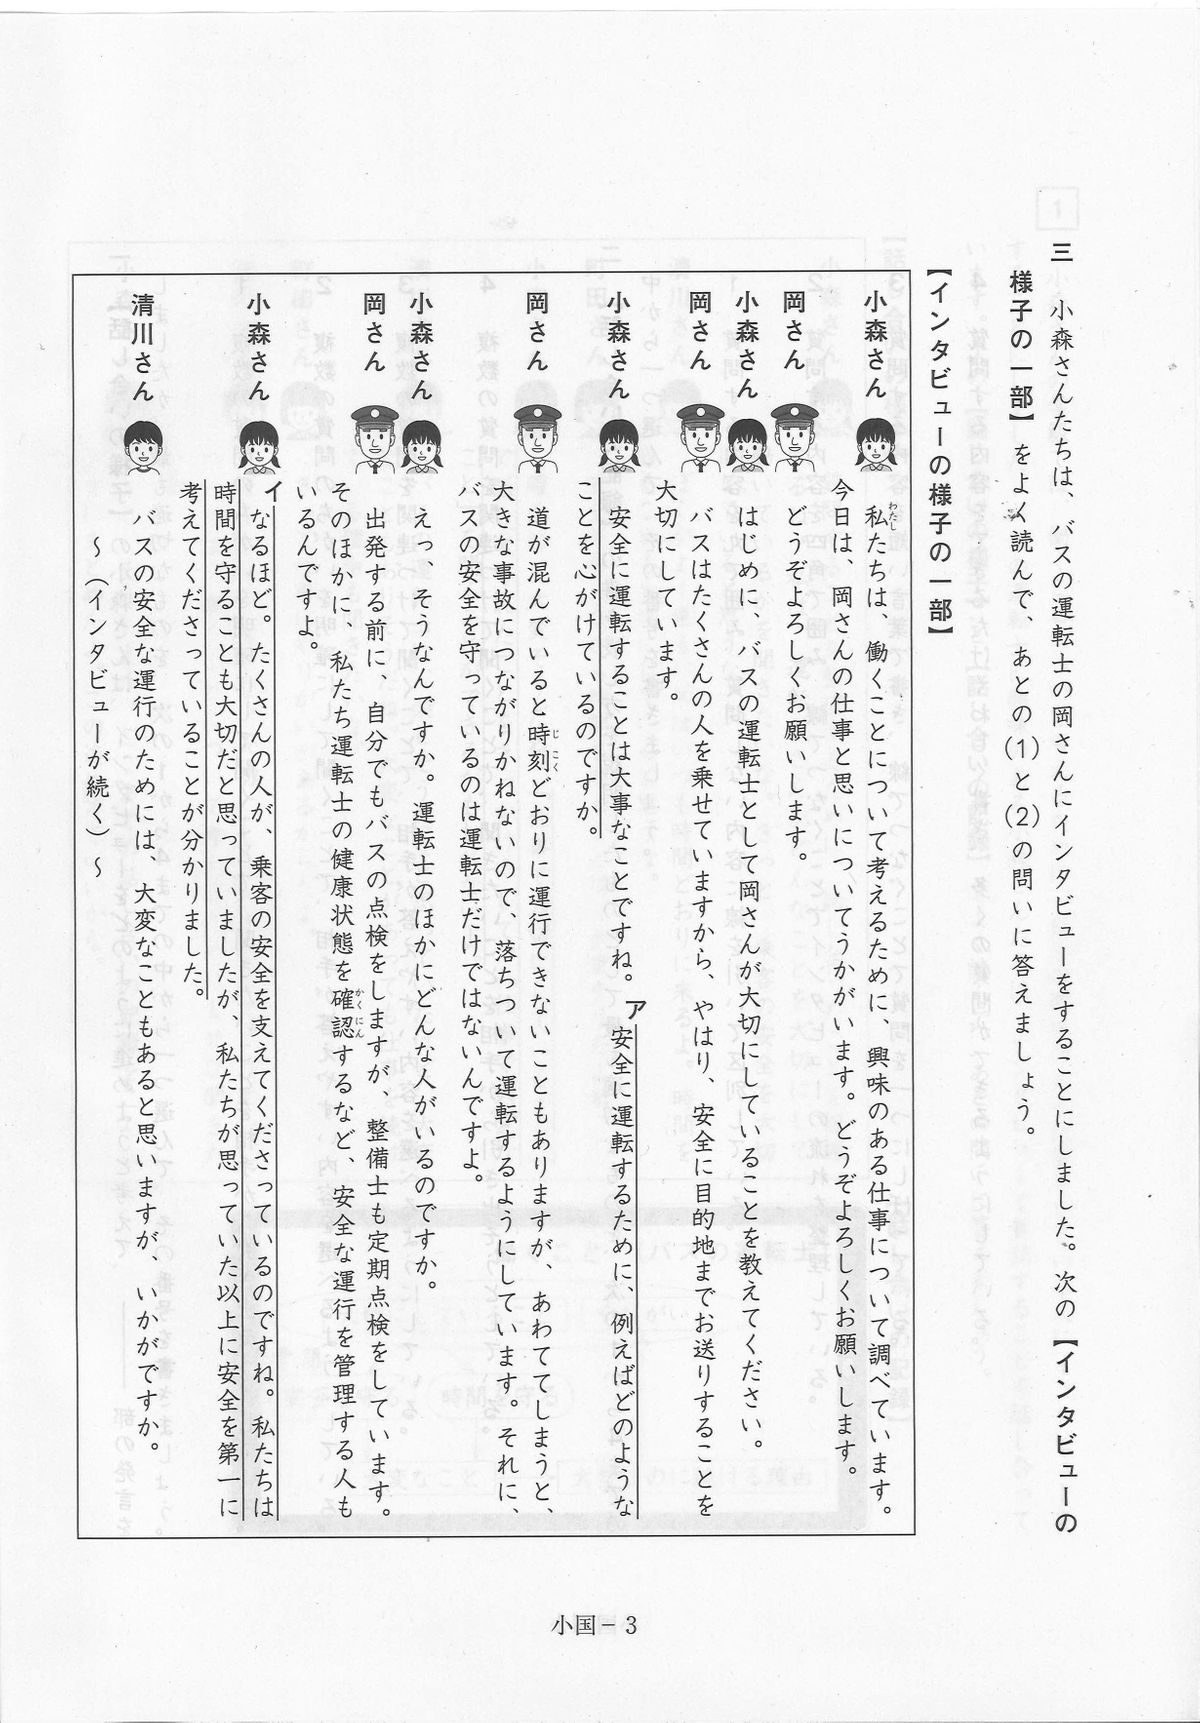 三　小森さんたちは、バスの運転士の岡さんにインタビューをすることにしました。次の【インタビューの
様子の一部】をよく読んで、あとの(1)と(2)の問いに答えましょう。
【インタビューの様子の一部】
小森さん　私たちは、働くことについて考えるために、興味のある仕事について調べています。
今日は、岡さんの仕事と思いについてうかがいます。どうぞよろしくお願いします。
岡さん　どうぞよろしくお願いします。
小森さん　はじめに、バスの運転士として岡さんが大切にしていることを教えてください。
岡さん　バスはたくさんの人を乗せていますから、やはり、安全に目的地までお送りすることを
大切にしています。
小森さん　安全に運転することは大事なことですね。ア安全に運転するために、例えばどのような
ことを心がけているのですか。
岡さん　道が混んでいると時刻どおりに運行できないこともありますが、あわててしまうと、
大きな事故につながりかねないので、落ちついて運転するようにしています。それに、
バスの安全を守っているのは運転士だけではないんですよ。
小森さん　えっ、そうなんですか。運転士のほかにどんな人がいるのですか。
岡さん　出発する前に、自分でもバスの点検をしますが、整備士も定期点検をしています。
そのほかに、私たち運転士の健康状態を確認するなど、安全な運行を管理する人も
いるんですよ。
小森さん　イなるほど。たくさんの人が、乗客の安全を支えてくださっているのですね。私たちは
時間を守ることも大切だと思っていましたが、私たちが思っていた以上に安全を第一に
考えてくださっていることが分かりました。
清川さん　バスの安全な運行のためには、大変なこともあると思いますが、いかがですか。
～（インタビューが続く）～
小国－3